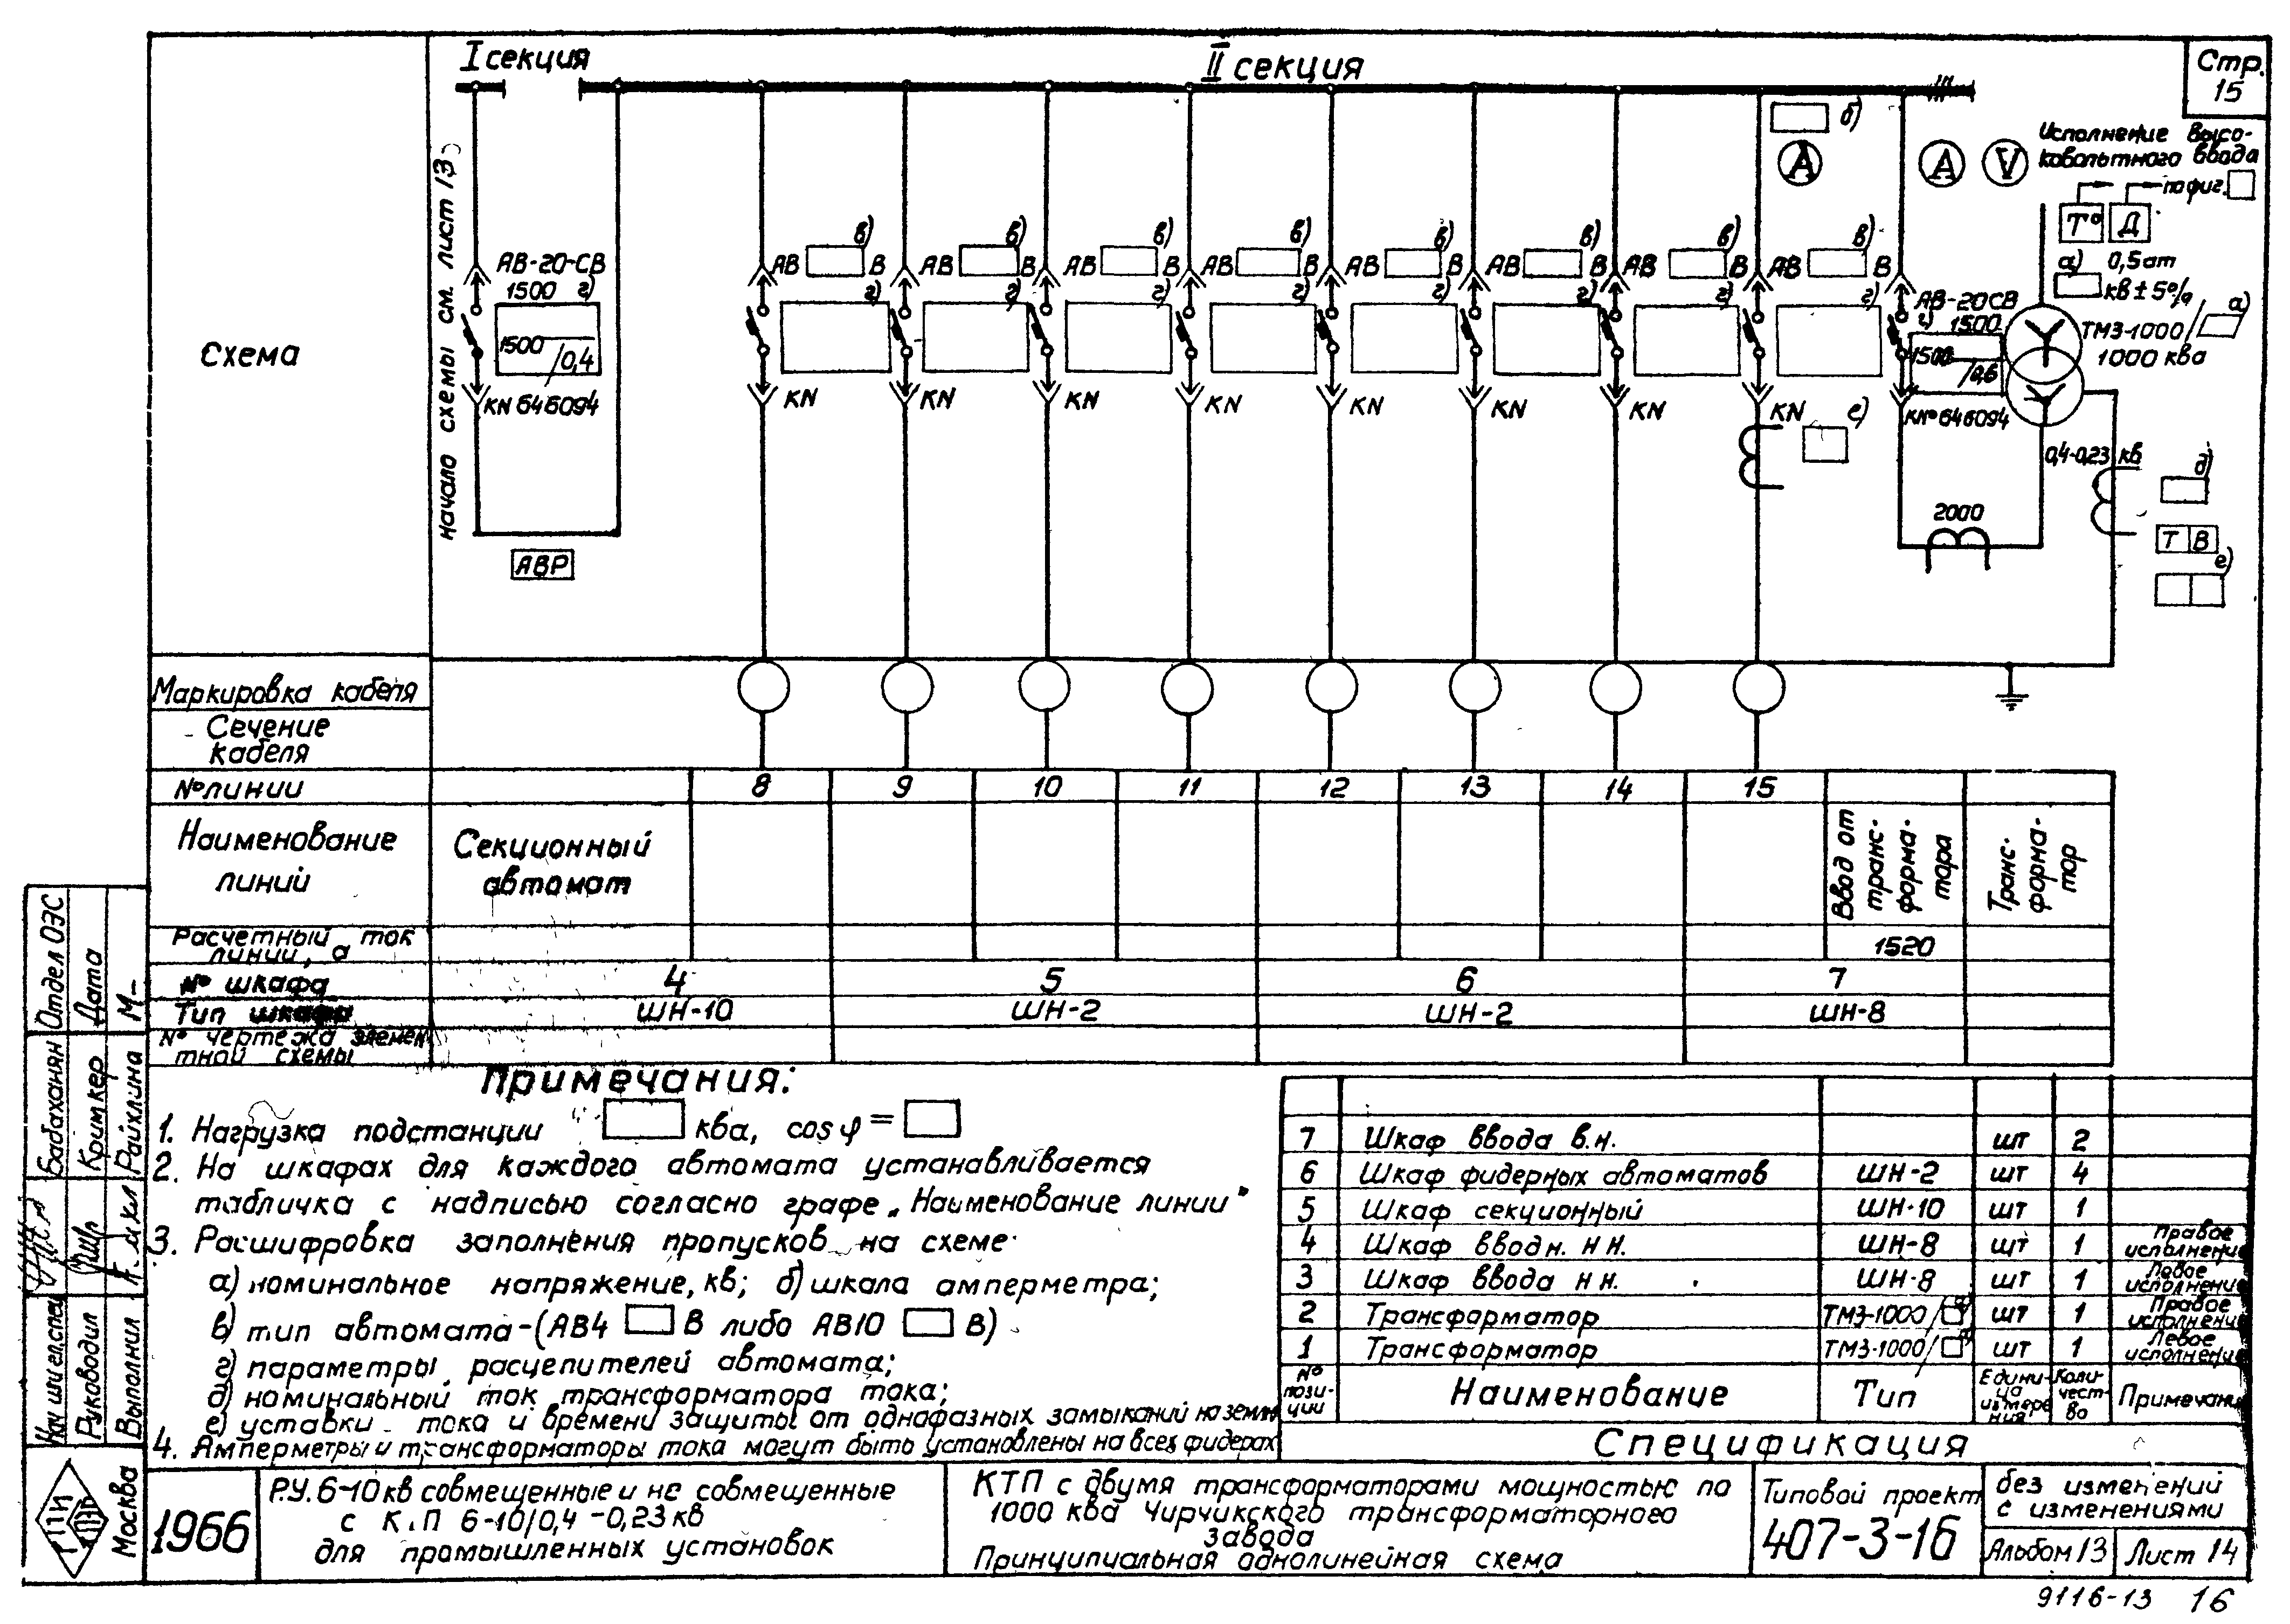 I секция
II секция
Стр.
15
Исполнение высо-
ковольтного ввода
по фиг.
Т° Д
а) 0,5ат
кв ± 5%
ТМЗ-1000/ а)
1000 ква
б)
А
А V
Схема
начало схемы см. лист 13
АВ-20-СВ
1500 г)
1500/0,4
KN 646094
АВР
АВ В в) г) KN
АВ В в) г) KN
АВ В в) г) KN
АВ В в) г) KN
АВ В в) г) KN
АВ В в) г) KN
АВ В в) г) KN
АВ В в) г) KN
е)
АВ-20СВ
г) 1500
1500/0,6
KN°646094
0,4-0,23 кв
2000
д)
Т В
г)
Маркировка кабеля
Сечение
кабеля
№линии 8 9 10 11 12 13 14 15
Наименование
линий
Секционный
автомат
Ввод от
транс-
форма-
тора
Транс-
форма-
тор
Расчетный ток
линии, а
1520
№ шкафа 4 5 6 7
Тип шкафа ШН-10 ШН-2 ШН-2 ШН-8
№ чертежа элемен
тной схемы
Примечания:
1. Нагрузка подстанции ква, cos φ =
2. На шкафах для каждого автомата устанавливается
табличка с надписью согласно графе „Наименование линии"
3. Расшифровка заполнения пропусков на схеме
а) номинальное напряжение, кв; б) шкала амперметра;
в) тип автомата-(АВ4 В либо АВ10 В)
г) параметры расцепителей автомата;
д) номинальный ток трансформатора тока;
е) уставки тока и времени защиты от однофазных замыканий на землю
4. Амперметры и трансформаторы тока могут быть установлены на всех фидерах
7 Шкаф ввода в.н. шт 2
6 Шкаф фидерных автоматов ШН-2 шт 4
5 Шкаф секционный ШН-10 шт 1
4 Шкаф вводн. н н. ШН-8 шт 1 Правое исполнение
3 Шкаф ввода н н. ШН-8 шт 1 Левое исполнение
2 Трансформатор ТМЗ-1000/ шт 1 Правое исполнение
1 Трансформатор ТМЗ-1000/ шт 1 Левое исполнение
№ пози-ции Наименование Тип Едини-ца измере ния Коли-чест-во Примечани
Спецификация
Отдел ОЭС
Дата
М-
Бабаханян
Кримкер
Райхлина
Руководил
Выполнил
ГПИ
ТПЭП
Москва
1966
Р.У. 6-10кв совмещенные и не совмещенные
с К.П 6-10/0,4-0,23кв
для промышленных установок
КТП с двумя трансформаторами мощностью по
1000 ква Чирчикского трансформаторного
завода
Принципиальная однолинейная схема
Типовой проект
407-3-16
без изменений
с изменениями
Альбом 13 Лист 14
9116-13 16